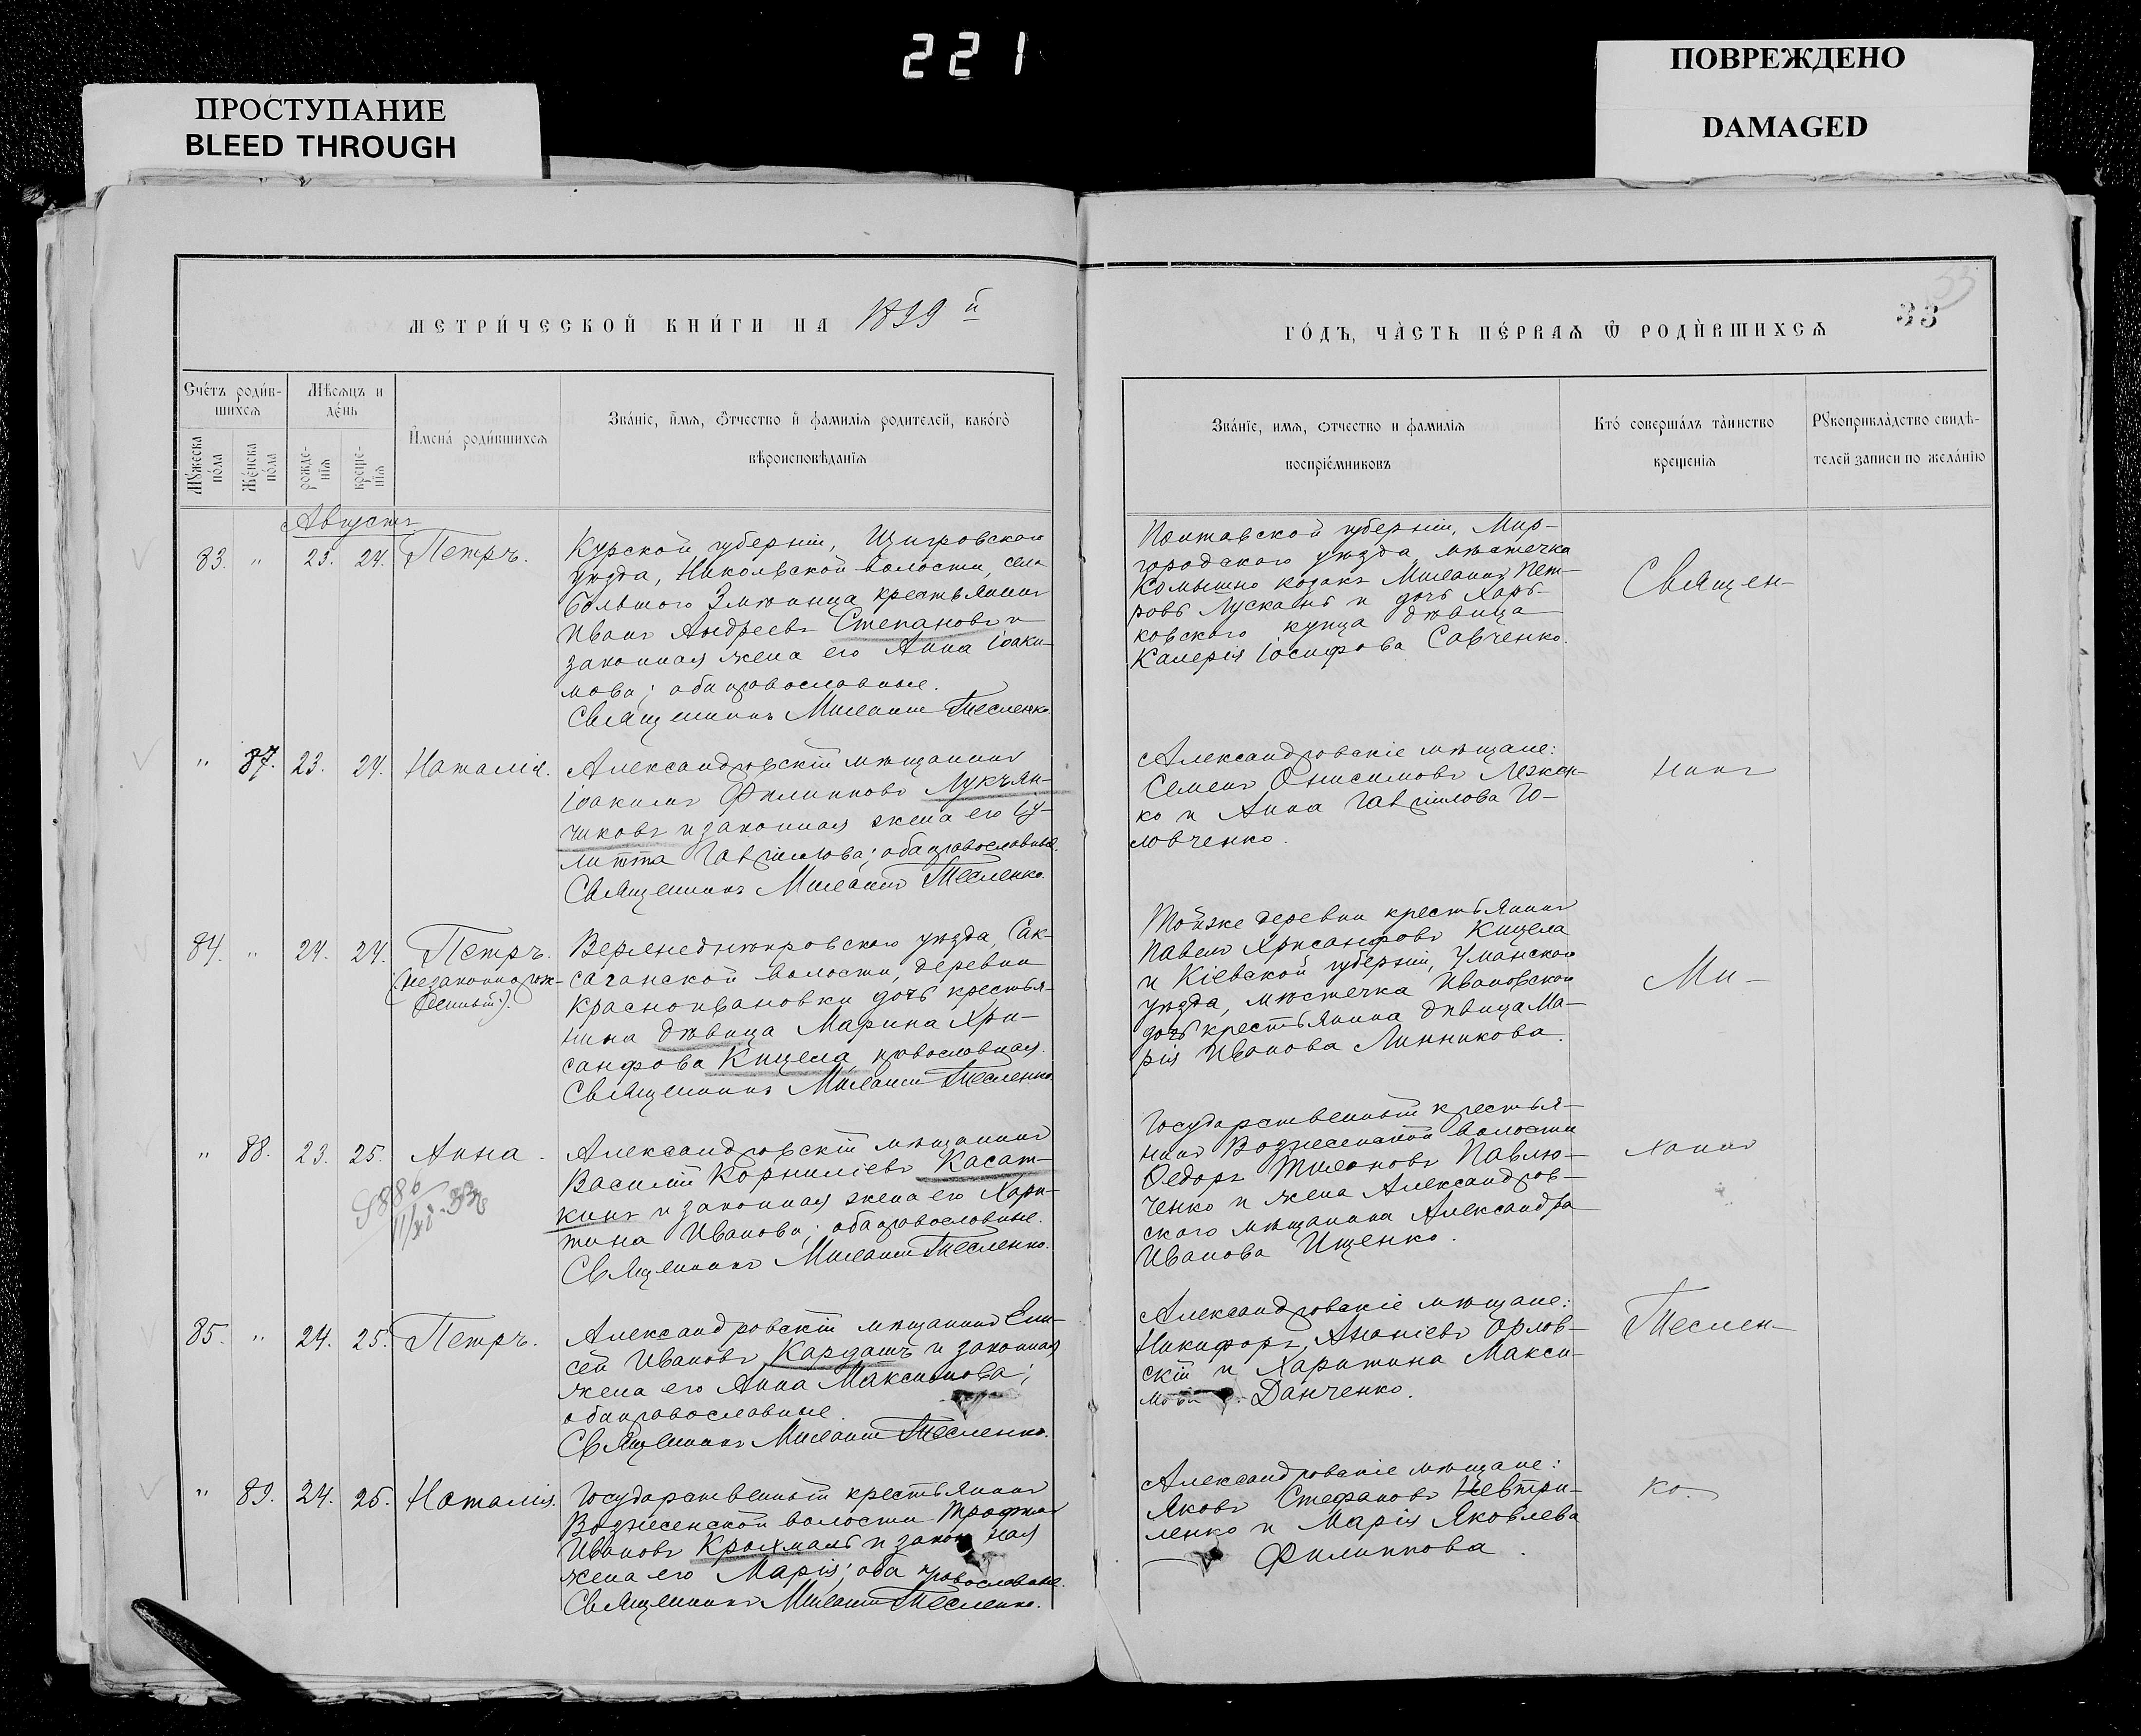 221
ПРОСТУПАНИЕ
BLEED THROUGH
ПОВРЕЖДЕНО
DAMAGED
МЕТРИ́ЧЕСКОЙ КНИ́ГИ НА 1899 й
ГО́ДЪ, ЧА́СТЬ ПЕ́РВАѦ Ѿ РОДИ́ВШИХСѦ
33
Сче́тъ роди́в-
шихсѧ
Мѣсѧцъ и
де́нь
Мꙋ́жеска
по́ла
Же́нска
по́ла
рожде-
нїѧ
креще-
нїѧ
Имена́ роди́вшихсѧ
Зва́нїе, и́мѧ, ѻ́тчество и фамилїѧ родителей, како́гѡ
вѣроисповѣ́данїѧ
Зва́нїе, имѧ, ѻтчество и фамилїѧ
воспрїе́мниковъ
Кто́ соверша́лъ та́инство
крещенїѧ
Рꙋкоприкла́дство свидѣ-
телей записи по жела́нїю
Августъ
83. " 23. 24. Петръ.
Курской губерніи, Щигровскаго
уѣзда, Никольской волости, села
Большого Змѣинца крестьянинъ
Иванъ Андреевъ Степановъ и
законная жена его Анна Іоаки-
мова; оба православные.
Священникъ Милетій Тесленко.
Полтавской губерніи, Мир-
городскаго уѣзда, мѣстечка
Комышно козакъ Пет-
ровъ и дочь Харь-
ковскаго купца дѣвица
Калерія Іосифова Савченко.
Священ-
" 87. 23. 24. Наталія.
Александровскій мѣщанинъ
Іоакимъ Филипповъ Лукъян-
чиковъ и законная жена его Іу-
литта Гавріилова; оба православные.
Священникъ Милетій Тесленко.
Александровскіе мѣщане:
Семенъ Онисимовъ Лежен-
ко и Анна Гавріилова Го-
ловченко.
никъ
84. " 24. 24. Петръ.
(незаконнорож-
денный).
Верхнеднѣпровскаго уѣзда, Сак-
саганской волости, деревни
Красноивановки дочь крестья-
нина дѣвица Марина Хри-
санфова Кицела, православная.
Священникъ Милетій Тесленко.
Той же деревни крестьянинъ
Павелъ Хрисанфовъ Кицела
и Кіевской губерніи, Уманскаго
уѣзда, мѣстечка Ивановской
дочь крестьянина дѣвица Ма-
рія Иванова Линникова.
Ми-
" 88. 23. 25. Анна.
Александровскій мѣщанинъ
Василій Корниліевъ Касат-
кинъ и законная жена его Хари-
тина Иванова; оба православные.
Священникъ Милетій Тесленко.
Государственный крестья-
нинъ Вознесенской волости
Ѳедоръ Павлю-
ченко и жена Александров-
скаго мѣщанина Александра
Иванова Ищенко.
85. " 24. 25. Петръ.
Александровскій мѣщанинъ Ели-
сей Ивановъ Кардашъ и законная
жена его Анна Максимова;
оба православные.
Священникъ Милетій Тесленко.
Александровскіе мѣщане:
Никифоръ Ананіевъ Орлов-
скій и Харитина Макси-
мова Данченко.
Теслен-
" 89. 24. 25. Наталія.
Государственный крестьянинъ
Вознесенской волости Трофимъ
Ивановъ Крахмаль и законная
жена его Марія; оба православные.
Священникъ Милетій Тесленко.
Александровскіе мѣщане:
Яковъ Стефановъ Невтри-
ленко и Марія Яковлева
Филиппова.
ко.